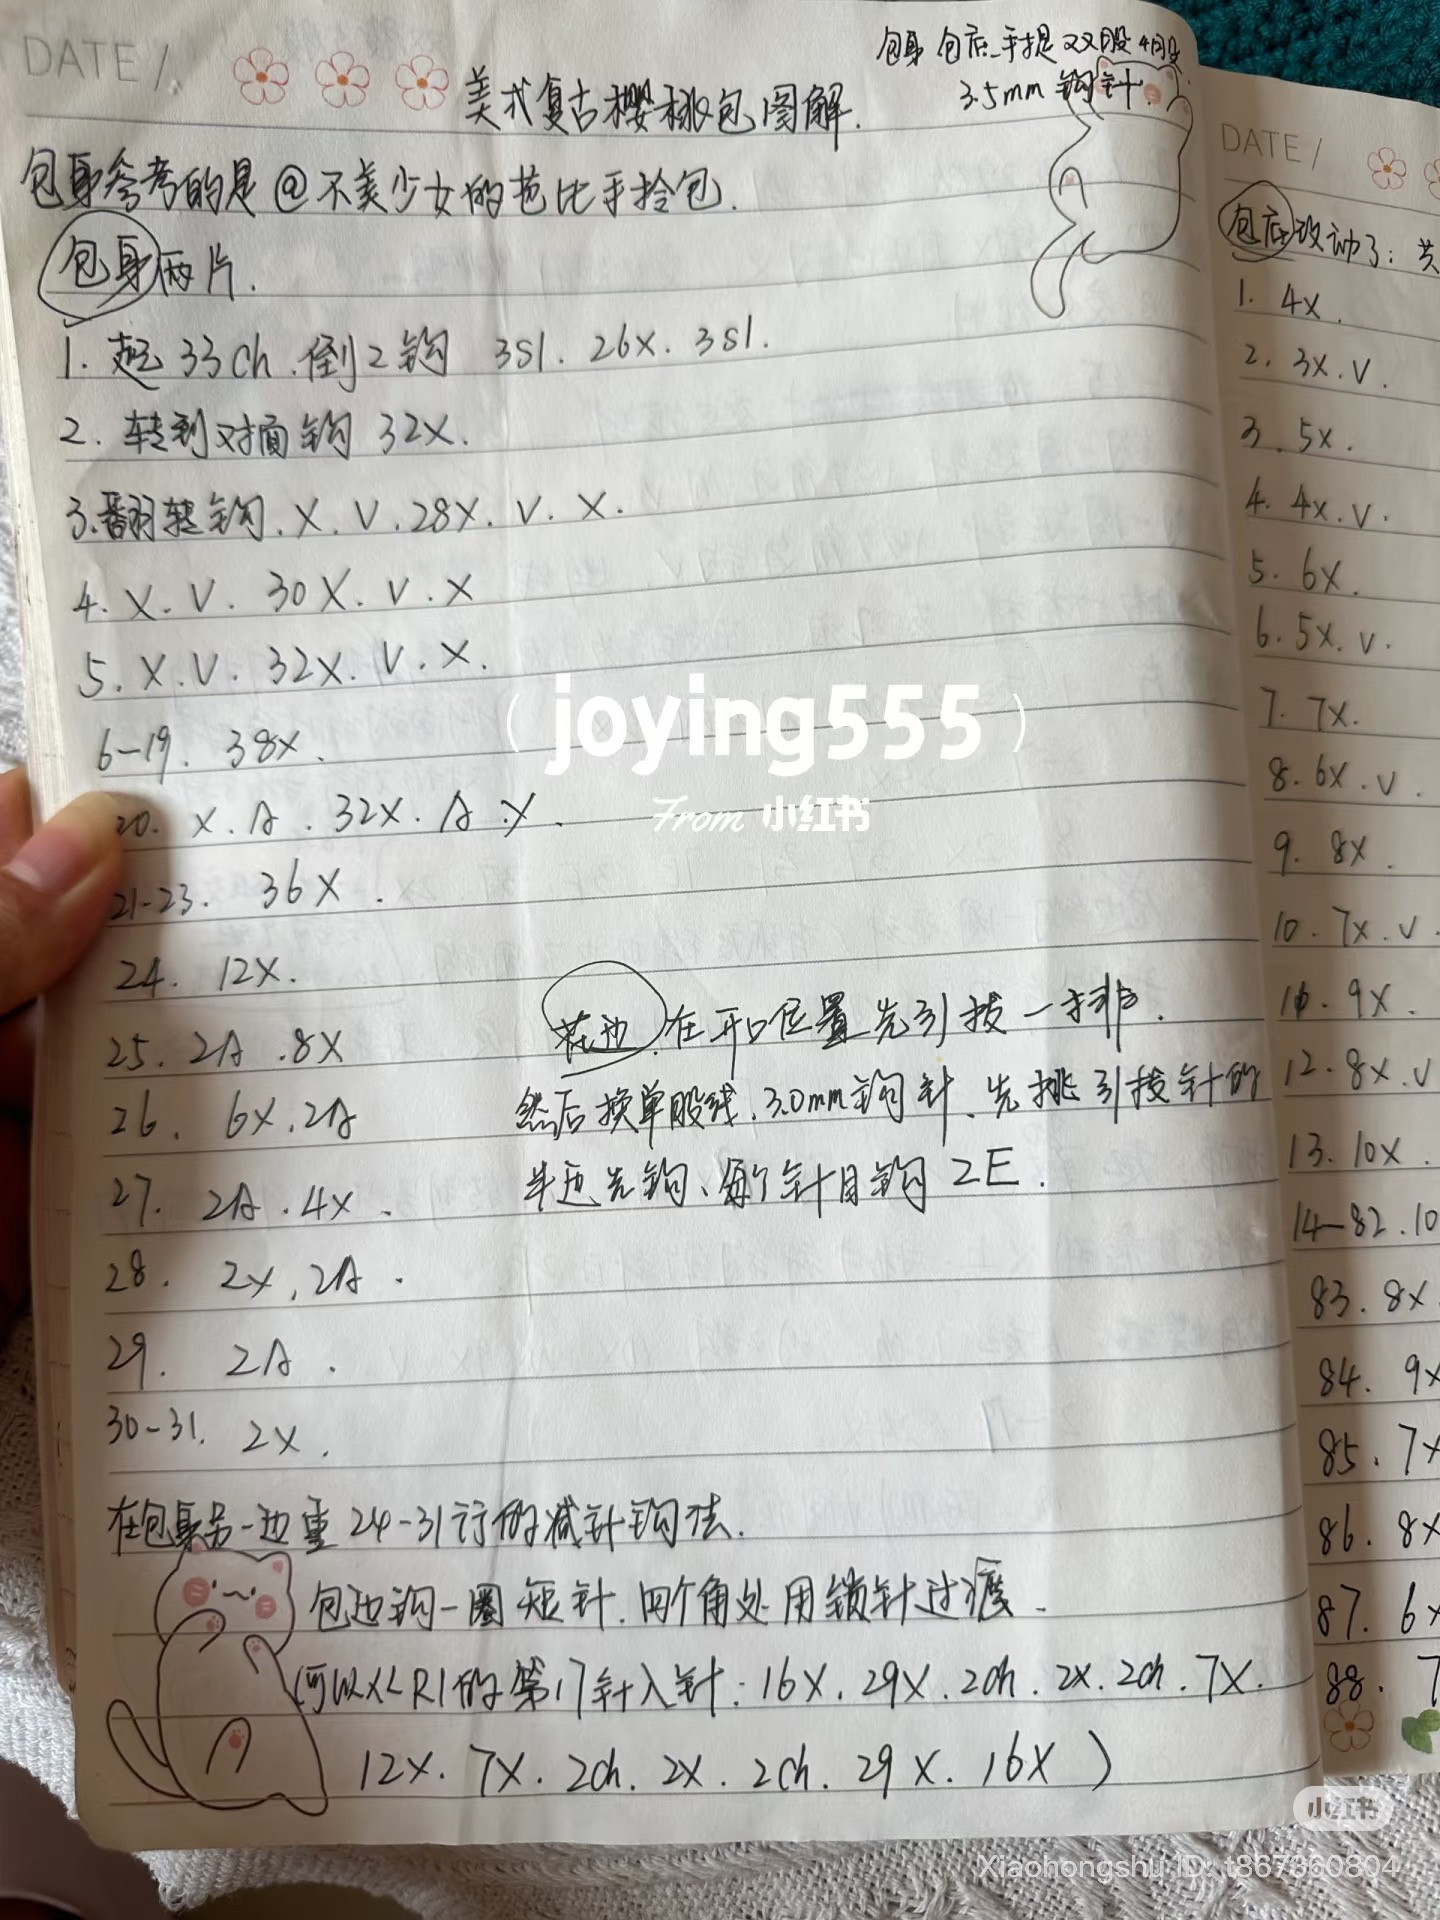 DATE /
包身 包底 手提 双股4股
3.5mm 钩针.
美式复古樱桃包图解.
包身参考的是@不美少女的芭比手拎包.
包身两片.
1. 起33ch.倒2钩 3sl. 26x. 3sl.
2. 转到对面钩 32x.
3.翻转钩.X.V.28X.V.X.
4. X.V. 30X.V.X
5. X.V. 32X.V.X.
6-19. 38x.
20. X.A. 32X.A.X.
21-23. 36X.
24. 12X.
25. 2A.8X
26. 6X.2A
27. 2A.4X.
28. 2X,2A.
29. 2A.
30-31. 2X.
花边.在开口位置先引拔一排.
然后换单股线.3.0mm钩针.先挑引拔针的
半边先钩、每个针目钩 2E.
在包身另一边重24-31行的减针钩法.
包边钩一圈短针.四个角处用锁针过渡.
(可以从R1的第17针入针: 16X.29X.2ch.2X.2ch.7X.
12X.7X.2ch.2X.2ch.29X.16X)
DATE /
包底改动了: 共
1. 4X.
2. 3X.V.
3. 5X.
4. 4X.V.
5. 6X.
6. 5X.V.
7. 7X.
8. 6X.V.
9. 8X.
10. 7X.V.
11. 9X.
12. 8X.V
13. 10X.
14-82. 10
83. 8X
84. 9X
85. 7X
86. 8X
87. 6X
88. 7
(joying555)
From 小红书
小红书
Xiaohongshu ID: t867360804